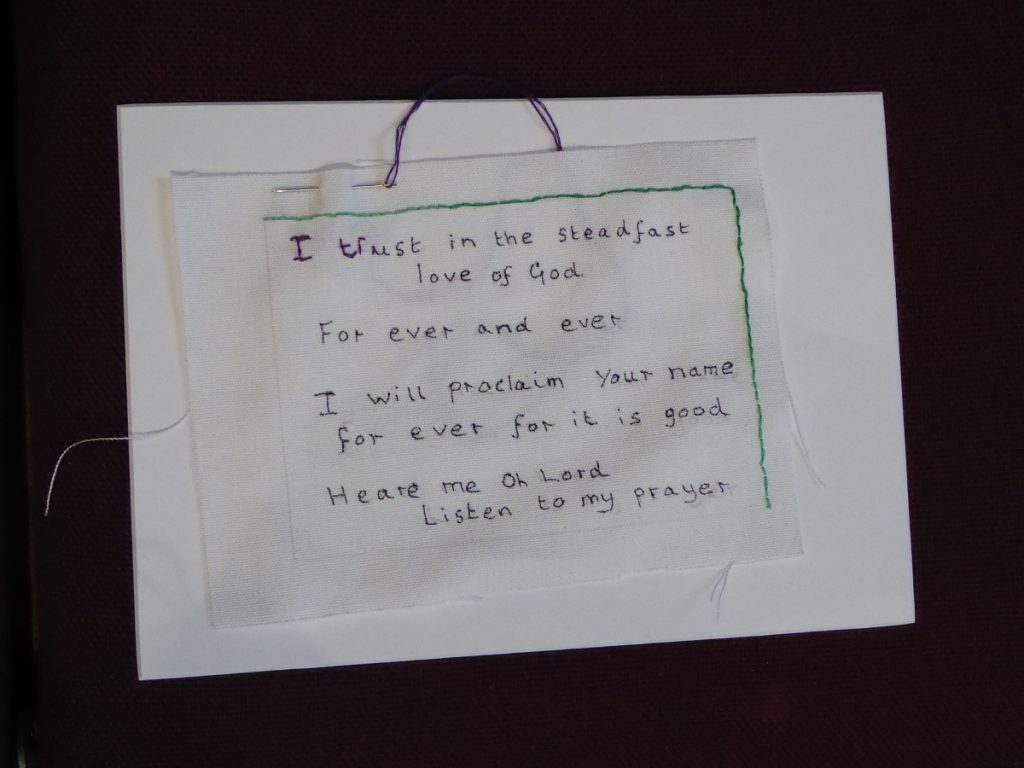 I trust in the steadfast
love of God
For ever and ever
I will proclaim Your name
for ever for it is good
Heare me Oh Lord
Listen to my prayer